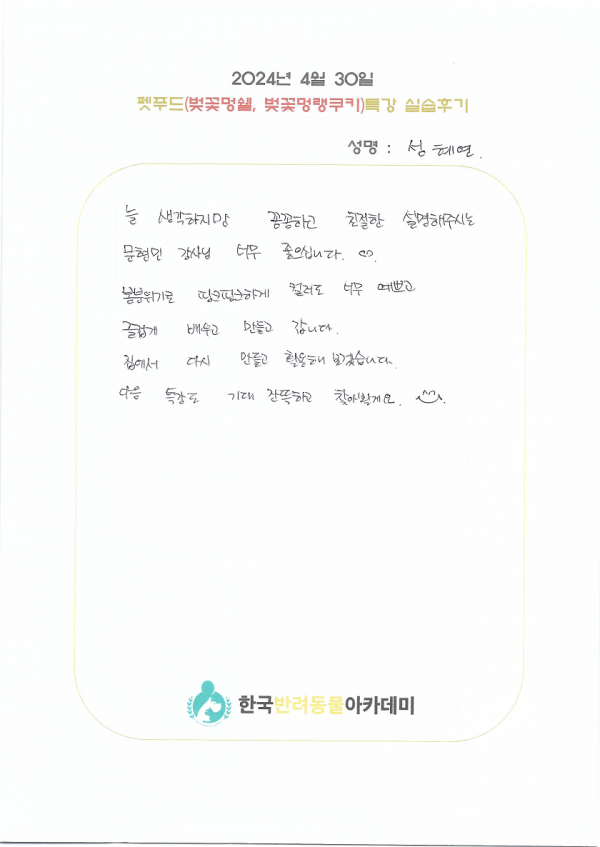 2024년 4월 30일
펫푸드(벚꽃멍쉘, 벚꽃멍랭쿠키)특강 실습후기
성명 : 성혜연.
늘 생각하지만 꼼꼼하고 친절한 설명해주시는
문형민 강사님 너무 좋으십니다.
봄분위기로 핑크핑크하게 컬러도 너무 예쁘고
즐겁게 배우고 만들고 갑니다.
집에서 다시 만들고 활용해보겠습니다.
다음 특강도 기대 잔뜩하고 찾아뵐게요.
한국반려동물아카데미